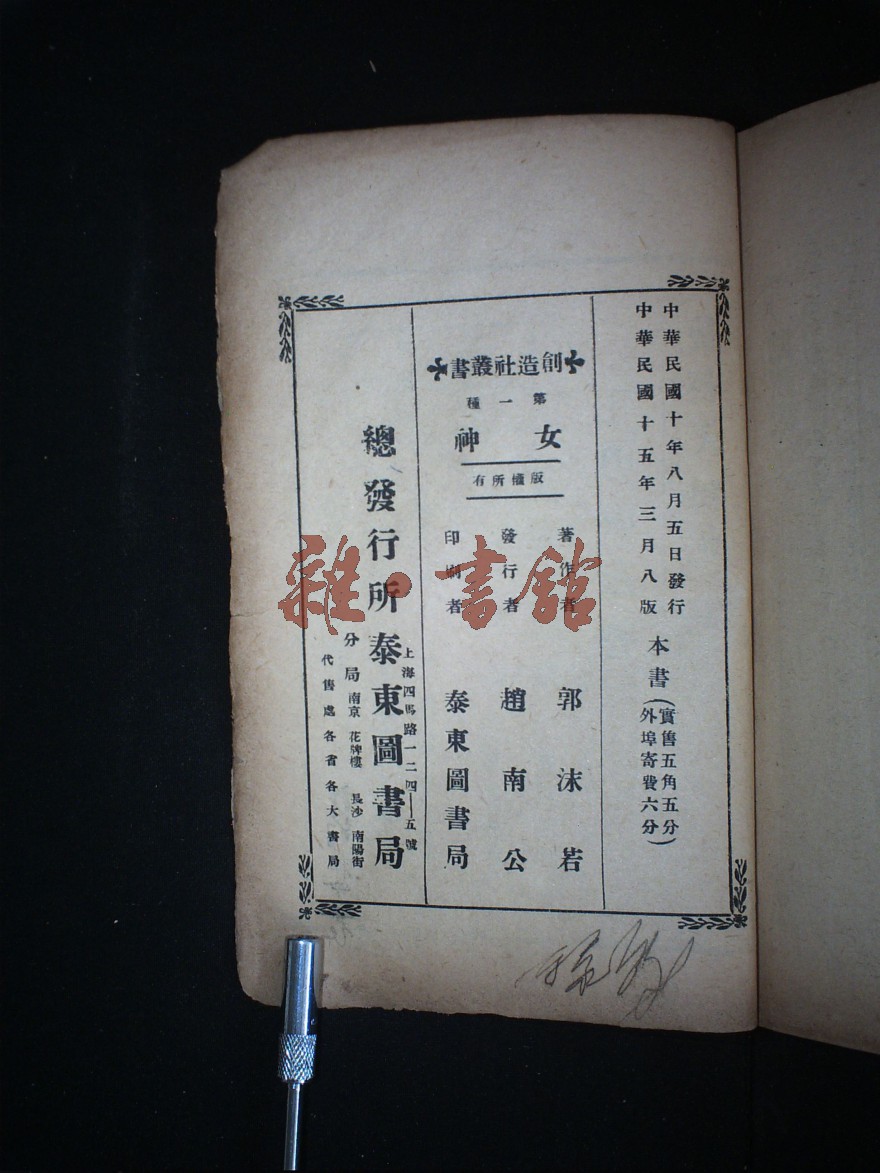 中華民國十年八月五日發行
中華民國十五年三月八版
本書(實售五角五分
外埠寄費六分)
創造社叢書
第一種
女神
版權所有
著作者 郭沫若
發行者 趙南公
印刷者 泰東圖書局
上海四馬路一二四——五號
總發行所泰東圖書局
分局 南京 花牌樓 長沙 南陽街
代售處各省各大書局
雜·書館